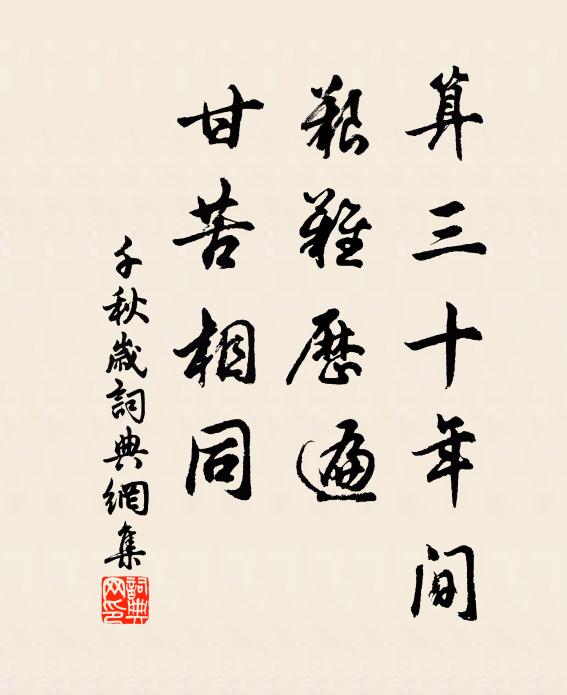 算三十年间
艱難歷遍
甘苦相同
千秋歲詞典網集
詞典网印